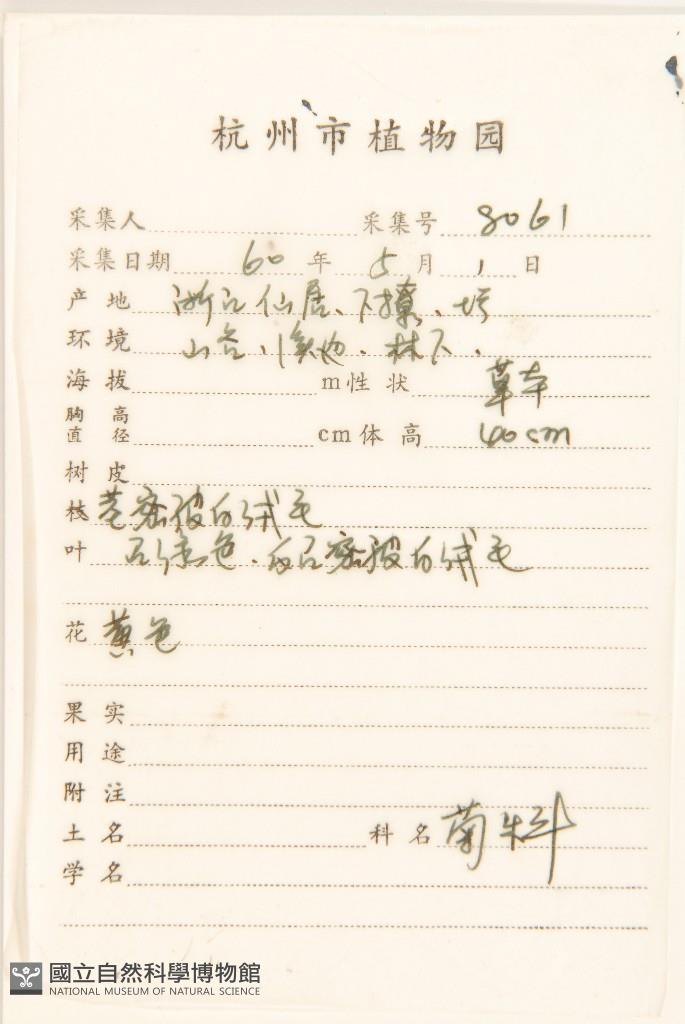 杭州市植物园
采集人 采集号 8061
采集日期 60 年 5 月 1 日
产地 浙江仙居、下撩、坞
环境 山谷、溪边、林下、
海拔 m性状 草本
胸高直径 cm体高 40cm
树皮
枝 茎密被白绒毛
叶 绿色、密被白绒毛
花 黄色
果实
用途
附注
土名 科名 菊科
学名
國立自然科學博物館
NATIONAL MUSEUM OF NATURAL SCIENCE